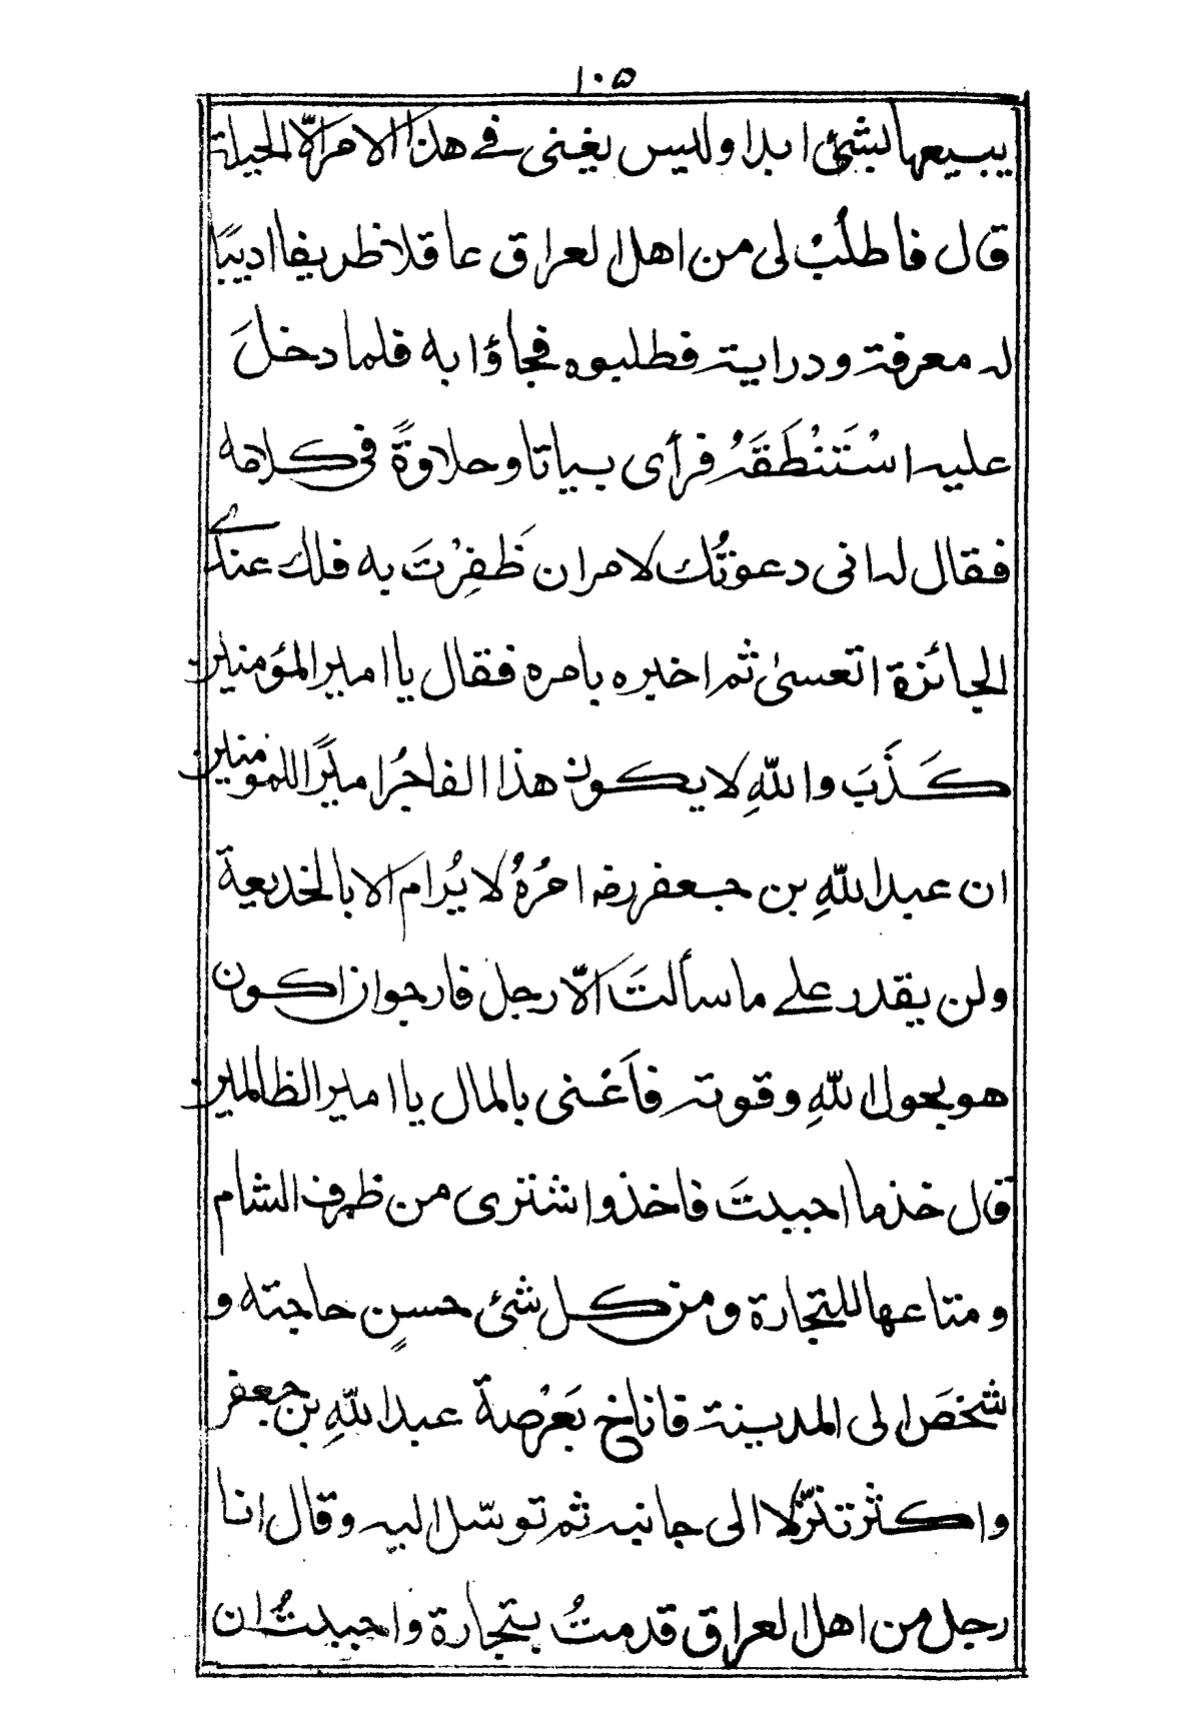 ١٠٥
يبيعها بشئ ابدا وليس يغنى فے هذا الامر الّا الحيلة
قال فاطلُبْ لى من اهل العراق عاقلا ظريفا اديبًا
له معرفة ودراية فطلبوه فجاؤا به فلما دخلَ
عليه اسْتَنْطَقَهُ فرأى بياتا وحلاوةً فى كلامه
فقال له انى دعوتُك لامر ان ظَفِرْتَ به فلك عندے
الجائزة اتعسىٰ ثم اخبره بامره فقال يا امير المؤمنين
كَذَبَ واللهِ لا يكون هذا الفاجرُ اميرًا للمومنين
ان عبد اللهِ بن جعفر رضه امرُهُ لا يُرام الا بالخديعة
ولن يقدر علے ما سألتَ الّا رجل فارجوا ان اكون
هو بحول اللهِ وقوته فاَعْنى بالمال يا امير الظالمين
قال خذ ما احببتَ فاخذ واشترى من ظرف الشام
ومتاعها للتجارة ومن كل شئ حسنٍ حاجته و
شخَصَ الى المدينة فاناخ بعَرْصة عبد اللهِ بن جعفر
واكثر تنزّلا الى جانبه ثم توسّل اليه وقال انا
رجل من اهل العراق قدمتُ بتجارة واحببتُ ان